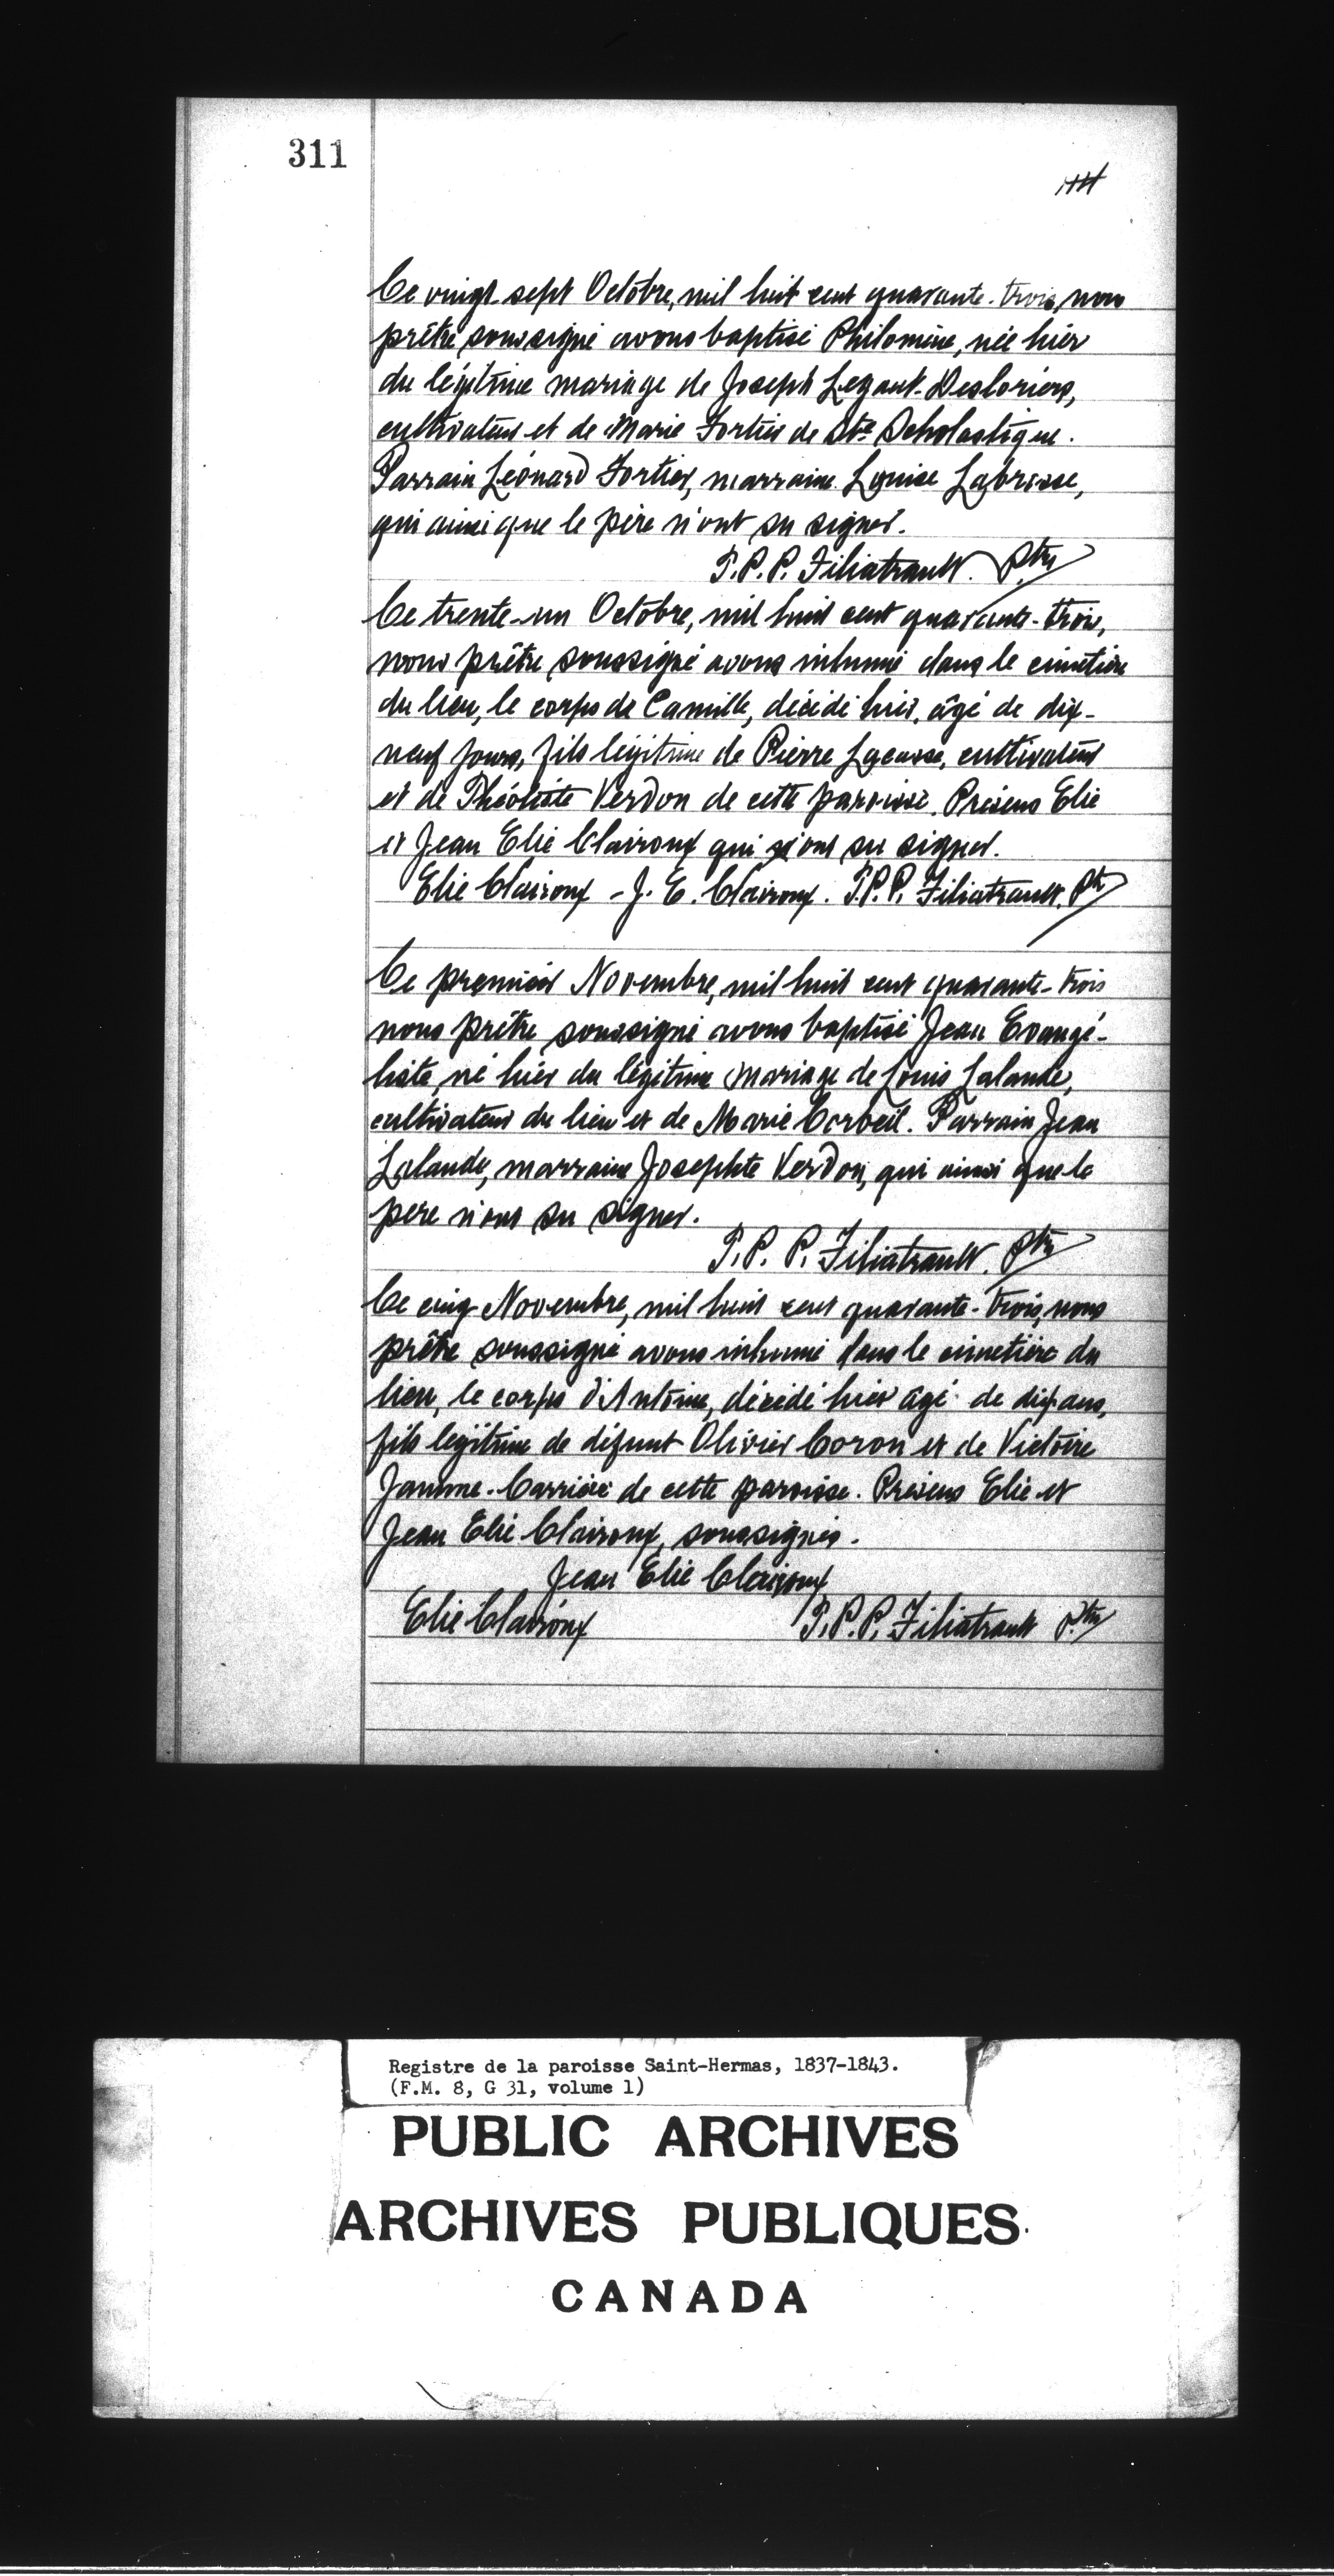 311
Ce vingt-sept Octobre, mil huit cent quarante-trois, nous
prêtre soussigné avons baptisé Philomène, née hier
du légitime mariage de Joseph Legault-Desloriers,
cultivateur et de Marie Fortier de Ste Scholastique.
Parrain Léonard Fortier, marraine Louise Labrosse,
qui ainsi que le père n'ont su signer.
P.P.P. Filiatrault. Ptre
Ce trente-un Octobre, mil huit cent quarante-trois,
nous prêtre soussigné avons inhumé dans le cimetière
du lieu, le corps de Camille, décédé hier, âgé de dix-
neuf jours, fils légitime de Pierre Lacasse, cultivateur
et de Théotiste Verdon de cette paroisse. Présens Elie
et Jean Elie Clairoux qui ont su signer.
Elie Clairoux - J. E. Clairoux. P.P.P. Filiatrault. Pte
Ce premier Novembre, mil huit cent quarante-trois
nous prêtre soussigné avons baptisé Jean Evangé-
liste, né hier du légitime mariage de Louis Lalande,
cultivateur du lieu et de Marie Corbeil. Parrain Jean
Lalande, marraine Josephte Verdon, qui ainsi que le
père n'ont su signer.
P.P.P. Filiatrault. Ptre
Ce cinq Novembre, mil huit cent quarante-trois, nous
prêtre soussigné avons inhumé dans le cimetière du
lieu, le corps d'Antoine, décédé hier âgé de dix ans,
fils légitime de défunt Olivier Coron et de Victoire
Jamme-Carrière de cette paroisse. Présens Elie et
Jean Elie Clairoux, soussignés.
Jean Elie Clairoux
Elie Clairoux P.P.P. Filiatrault Ptre
Registre de la paroisse Saint-Hermas, 1837-1843.
(F.M. 8, G 31, volume 1)
PUBLIC ARCHIVES
ARCHIVES PUBLIQUES
CANADA